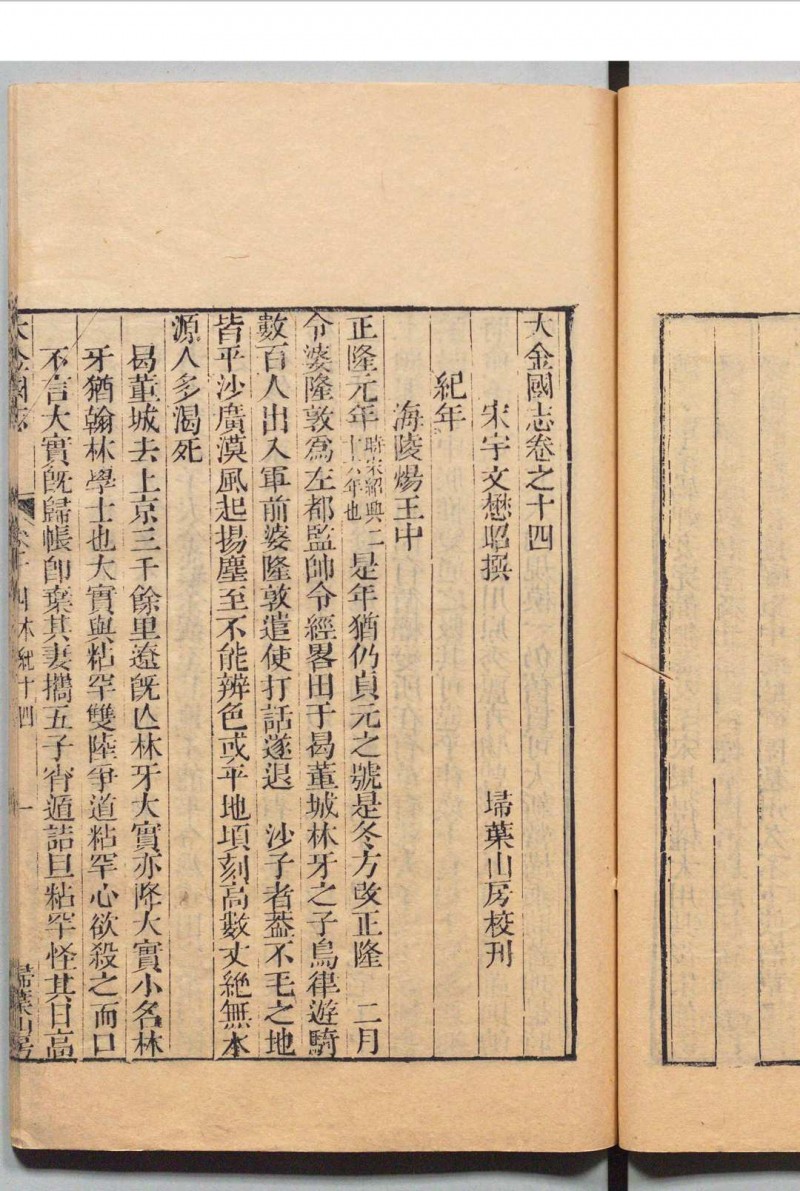 大金國志卷之十四
宋宇文懋昭撰 埽葉山房校刊
紀年
海陵煬王中
正隆元年時宋紹興二十六年也是年猶仍貞元之號是冬方改正隆 二月
令婆隆敦爲左都監帥令經畧田于曷董城林牙之子烏律遊騎
數百人出入軍前婆隆敦遣使打話遂退 沙子者葢不毛之地
皆平沙廣漠風起揚塵至不能辨色或平地項刻高數丈絶無水
源人多渴死
曷董城去上京三千餘里遼旣亾林牙大實亦降大實小名林
牙猶翰林學士也大實與粘罕雙陸爭道粘罕心欲殺之而口
不言大實旣歸帳卽棄其妻攜五子宵遁詰旦粘罕怪其日高
大金國志 卷十四本紀十四 一 埽葉山房